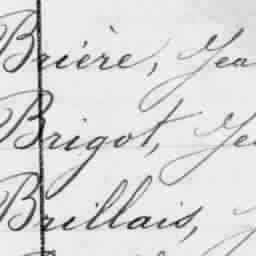 Brière, Jea
Brigot, Je
Brillais, J